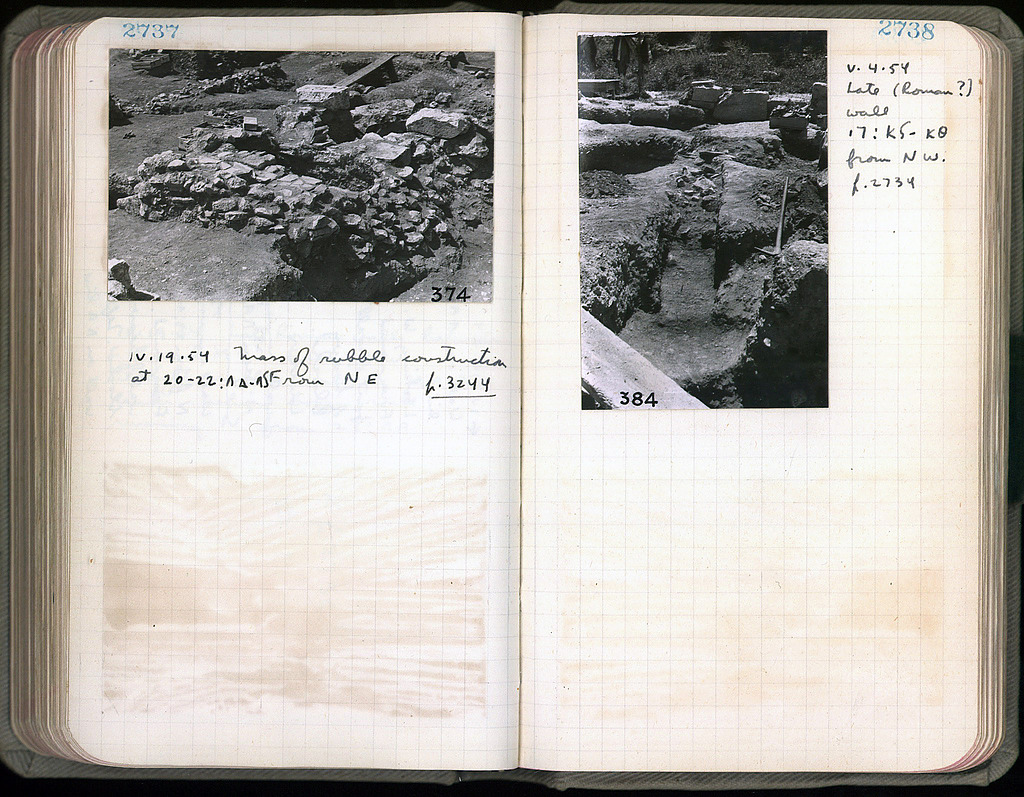 2737
374
IV.19.54 Mass of rubble construction
at 20-22:ΛΔ-ΛΣΤ From NE p.3244
2738
V.4.54
Late (Roman?)
wall
17: ΚϚ-ΚΘ
from NW.
p.2734
384